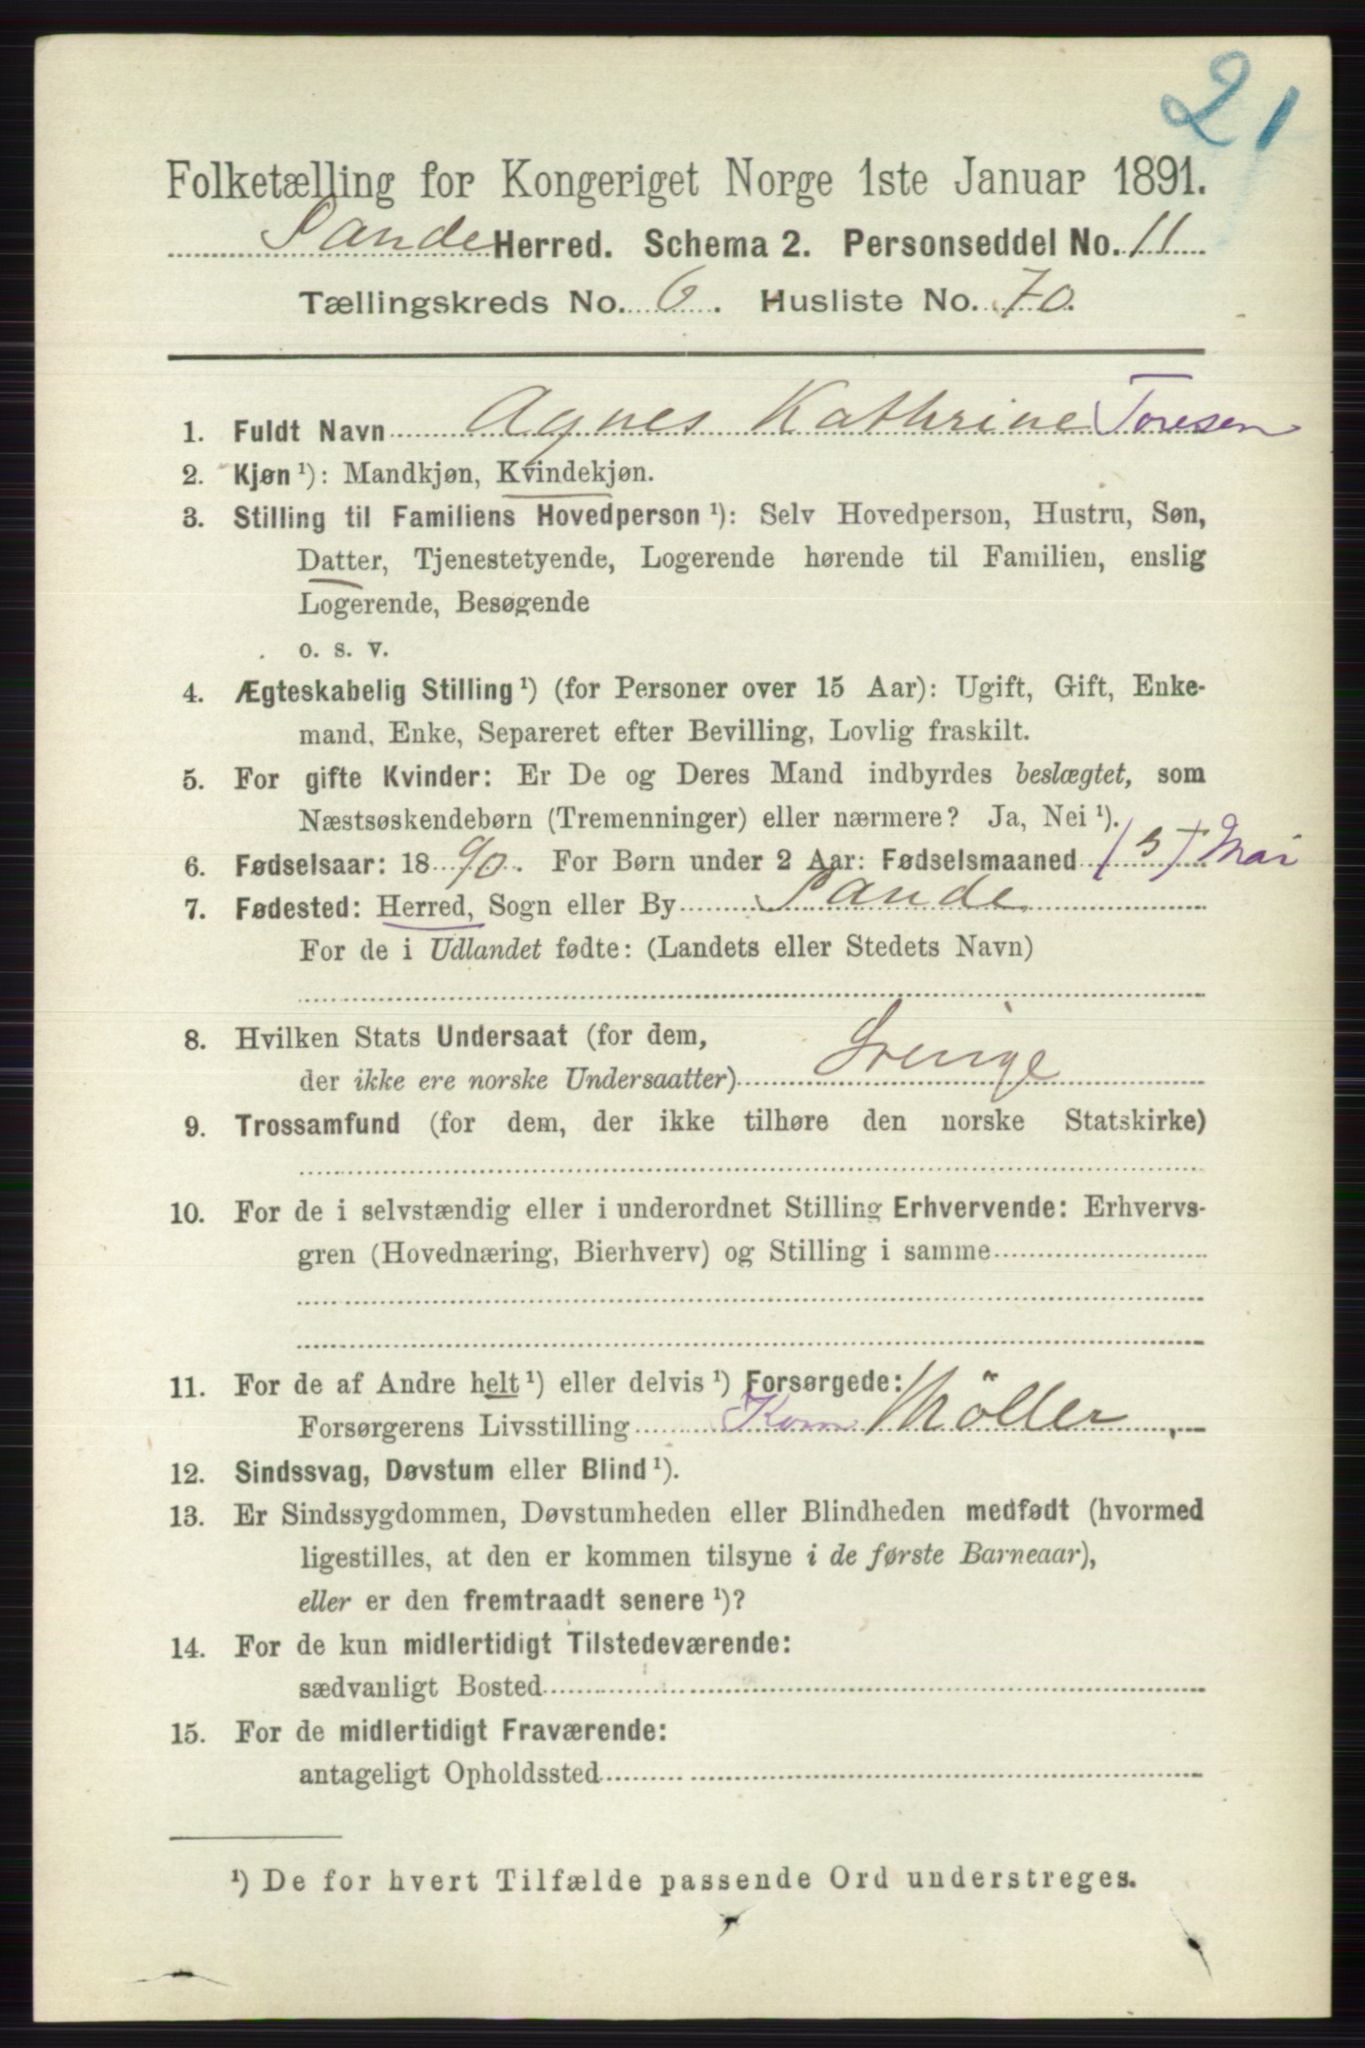 21
Folketælling for Kongeriget Norge 1ste Januar 1891.
Sande Herred. Schema 2. Personseddel No. 11
Tællingskreds No. 6. Husliste No. 70.
1. Fuldt Navn Agnes Kathrine Toresen
2. Kjøn ¹): Mandkjøn, Kvindekjøn.
3. Stilling til Familiens Hovedperson ¹): Selv Hovedperson, Hustru, Søn,
Datter, Tjenestetyende, Logerende hørende til Familien, enslig
Logerende, Besøgende
o. s. v.
4. Ægteskabelig Stilling ¹) (for Personer over 15 Aar): Ugift, Gift, Enke-
mand, Enke, Separeret efter Bevilling, Lovlig fraskilt.
5. For gifte Kvinder: Er De og Deres Mand indbyrdes beslægtet, som
Næstsøskendebørn (Tremenninger) eller nærmere? Ja, Nei ¹).
6. Fødselsaar: 1890. For Børn under 2 Aar: Fødselsmaaned (5) Mai
7. Fødested: Herred, Sogn eller By Sande
For de i Udlandet fødte: (Landets eller Stedets Navn)
8. Hvilken Stats Undersaat (for dem,
der ikke ere norske Undersaatter) Sverige
9. Trossamfund (for dem, der ikke tilhøre den norske Statskirke)
10. For de i selvstændig eller i underordnet Stilling Erhvervende: Erhvervs-
gren (Hovednæring, Bierhverv) og Stilling i samme
11. For de af Andre helt ¹) eller delvis ¹) Forsørgede:
Forsørgerens Livsstilling Korn Möller
12. Sindssvag, Døvstum eller Blind ¹).
13. Er Sindssygdommen, Døvstumheden eller Blindheden medfødt (hvormed
ligestilles, at den er kommen tilsyne i de første Barneaar),
eller er den fremtraadt senere ¹)?
14. For de kun midlertidigt Tilstedeværende:
sædvanligt Bosted
15. For de midlertidigt Fraværende:
antageligt Opholdssted
¹) De for hvert Tilfælde passende Ord understreges.